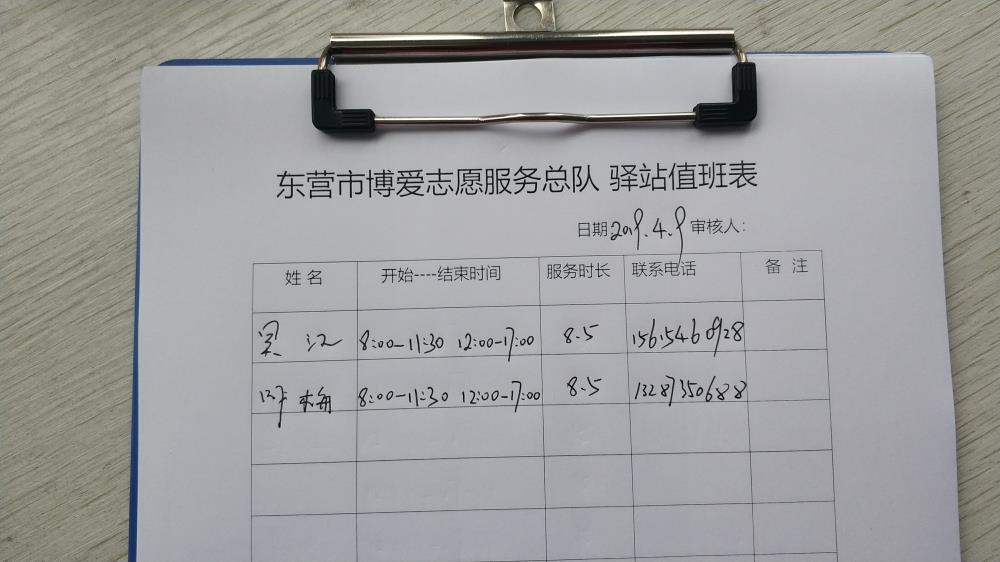 东营市博爱志愿服务总队 驿站值班表
日期2019.4.9 审核人:
姓名 开始----结束时间 服务时长 联系电话 备 注
吴江 8:00-11:30 12:00-17:00 8.5 15615460928
8:00-11:30 12:00-17:00 8.5 13287350688